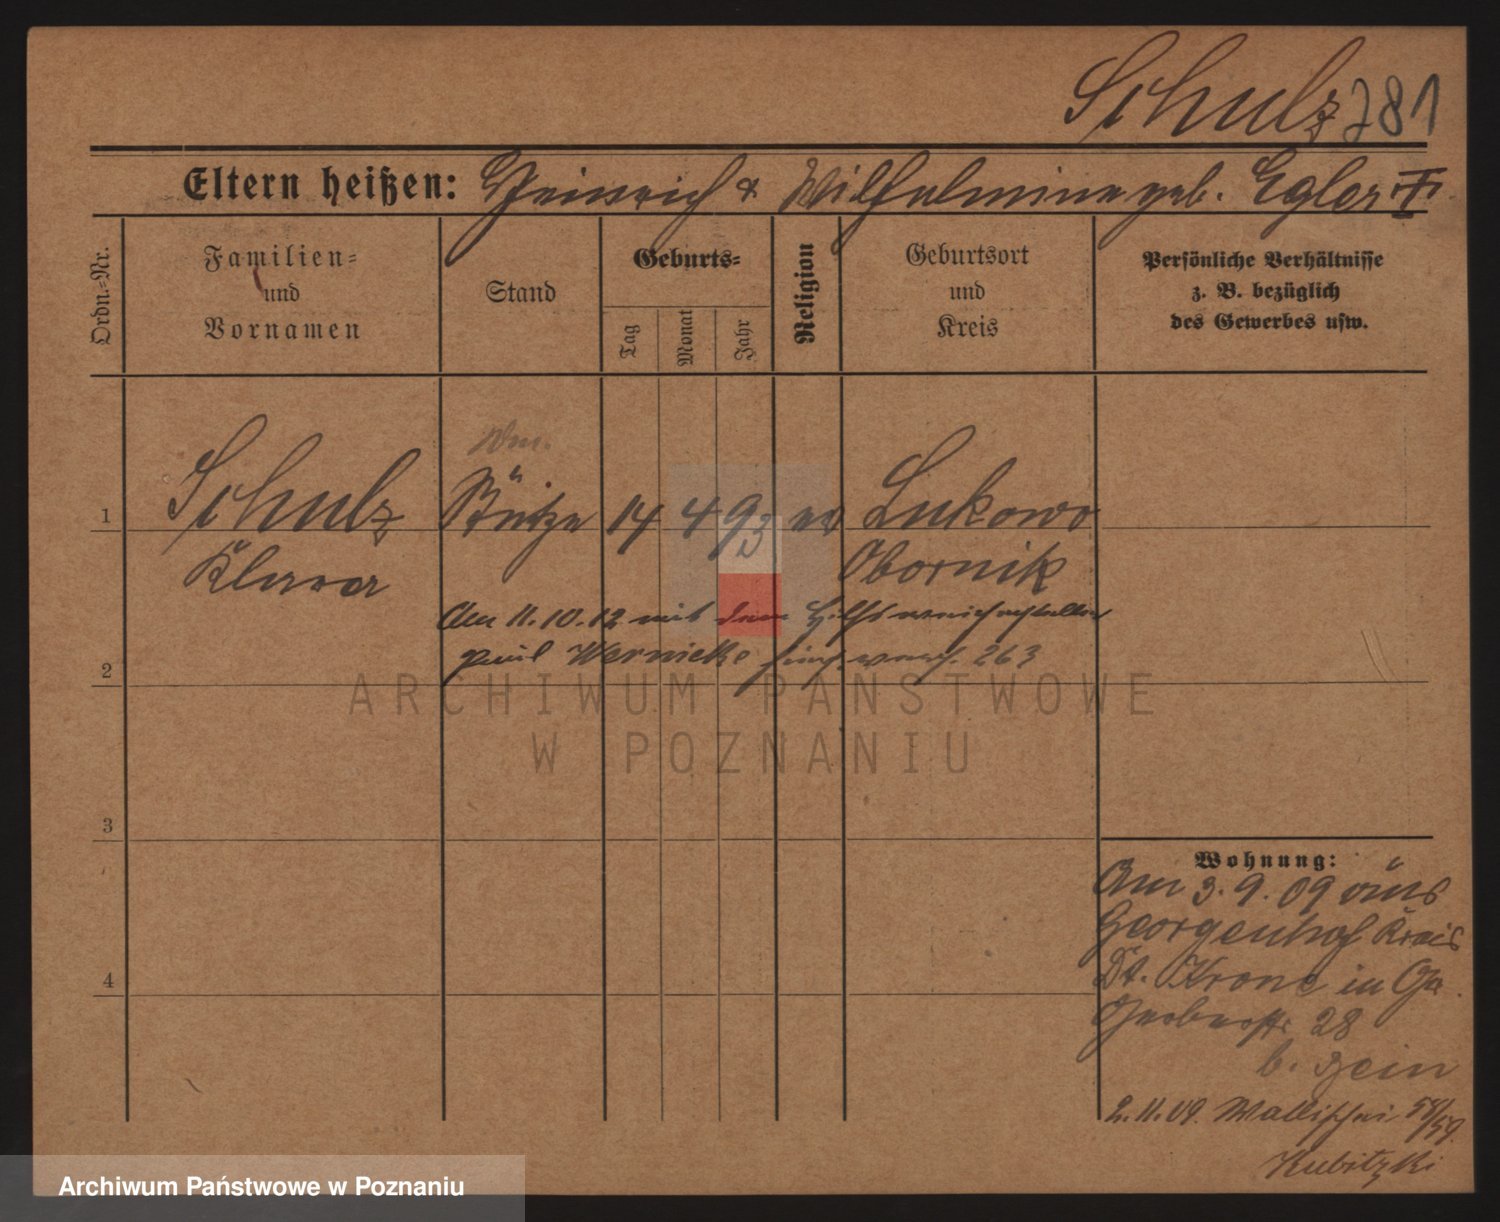 Schulz 281
Eltern heißen: Heinrich & Wilhelmine geb. Egler
Ordn.-Nr.
Familien-
und
Vornamen
Stand
Geburts-
Tag
Monat
Jahr
Religion
Geburtsort
und
Kreis
Persönliche Verhältnisse
z. B. bezüglich
des Gewerbes usw.
1
Schulz
Klara
Stütze
14
4
93
ev
Lukowo
Obornik
Am 11.10.12 mit dem
Paul Wernicke 263
2
3
4
Wohnung:
Am 3.9.09 aus
Georgenhof Kreis
Dt. Krone in
Gerberstr 28
b. Zein
2.11.09. Wallischei 58/59.
Kubitzki
ARCHIWUM PAŃSTWOWE
W POZNANIU
Archiwum Państwowe w Poznaniu